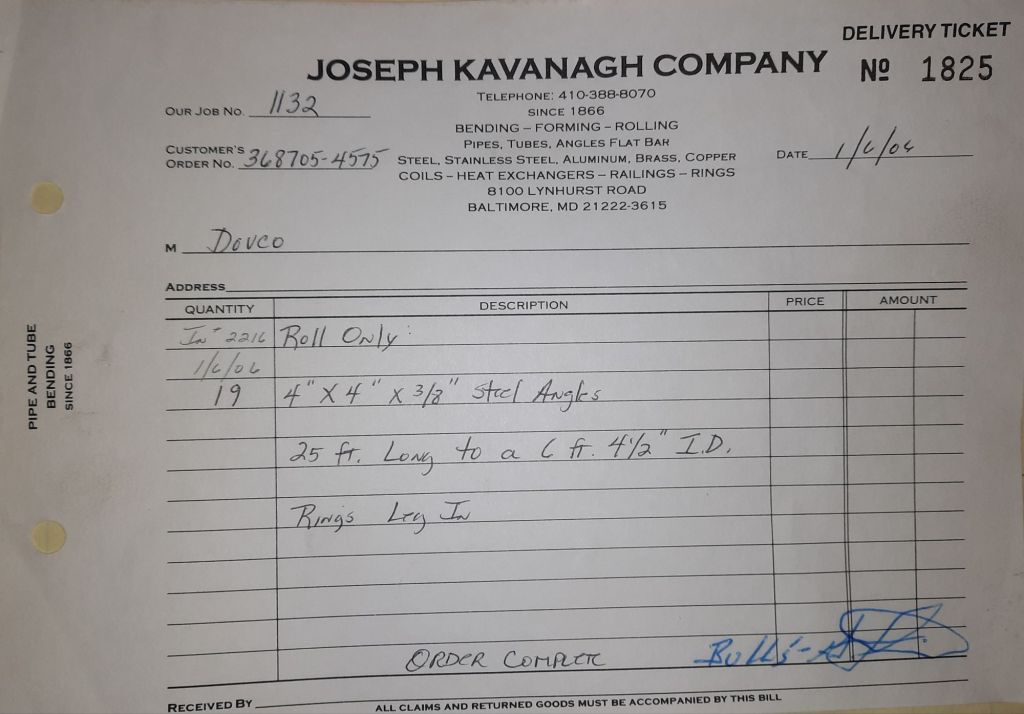 DELIVERY TICKET
JOSEPH KAVANAGH COMPANY
Nº 1825
TELEPHONE: 410-388-8070
SINCE 1866
BENDING – FORMING – ROLLING
PIPES, TUBES, ANGLES FLAT BAR
STEEL, STAINLESS STEEL, ALUMINUM, BRASS, COPPER
COILS – HEAT EXCHANGERS – RAILINGS – RINGS
8100 LYNHURST ROAD
BALTIMORE, MD 21222-3615
OUR JOB NO. 1132
CUSTOMER'S ORDER NO. 368705-4575
DATE 1/6/06
M Dovco
ADDRESS
QUANTITY DESCRIPTION PRICE AMOUNT
In# 2216 Roll Only:
1/6/06
19 4" X 4" X 3/8" Steel Angles
25 ft. Long to a 6 ft. 4 1/2" I.D.
Rings Leg In
ORDER COMPLETE
RECEIVED BY
ALL CLAIMS AND RETURNED GOODS MUST BE ACCOMPANIED BY THIS BILL
PIPE AND TUBE
BENDING
SINCE 1866